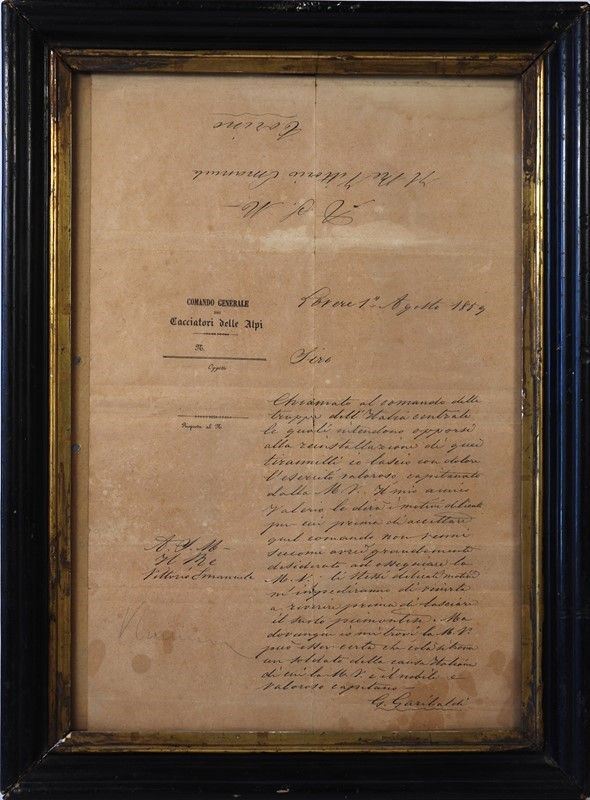 Torino
Il Re Vittorio Emanuele
A S. M.
COMANDO GENERALE
DEI
Cacciatori delle Alpi
N.
Oggetto
Risposta al N.
Lovere 1º Agosto 1859
Sire
Chiamato al comando delle
truppe dell'Italia centrale
le quali intendono opporsi
alla reinstallazione di quei
tirannelli io lascio con dolore
l'esercito valoroso capitanato
dalla M. V. Il mio amico
Valerio le dirà i motivi delicati
per cui prima di accettare
quel comando non venni
siccome avrei grandemente
desiderato ad ossequiare la
M. V. li stessi delicati motivi
m'impediranno di venirla
a riverire prima di lasciare
il suolo piemontese. Ma
dovunque io mi trovi la M. V.
può esser certa che colà si trova
un soldato della causa Italiana
di cui la M. V. è il nobile e
valoroso capitano
G. Garibaldi
A. S. M.
Il Re
Vittorio Emanuele